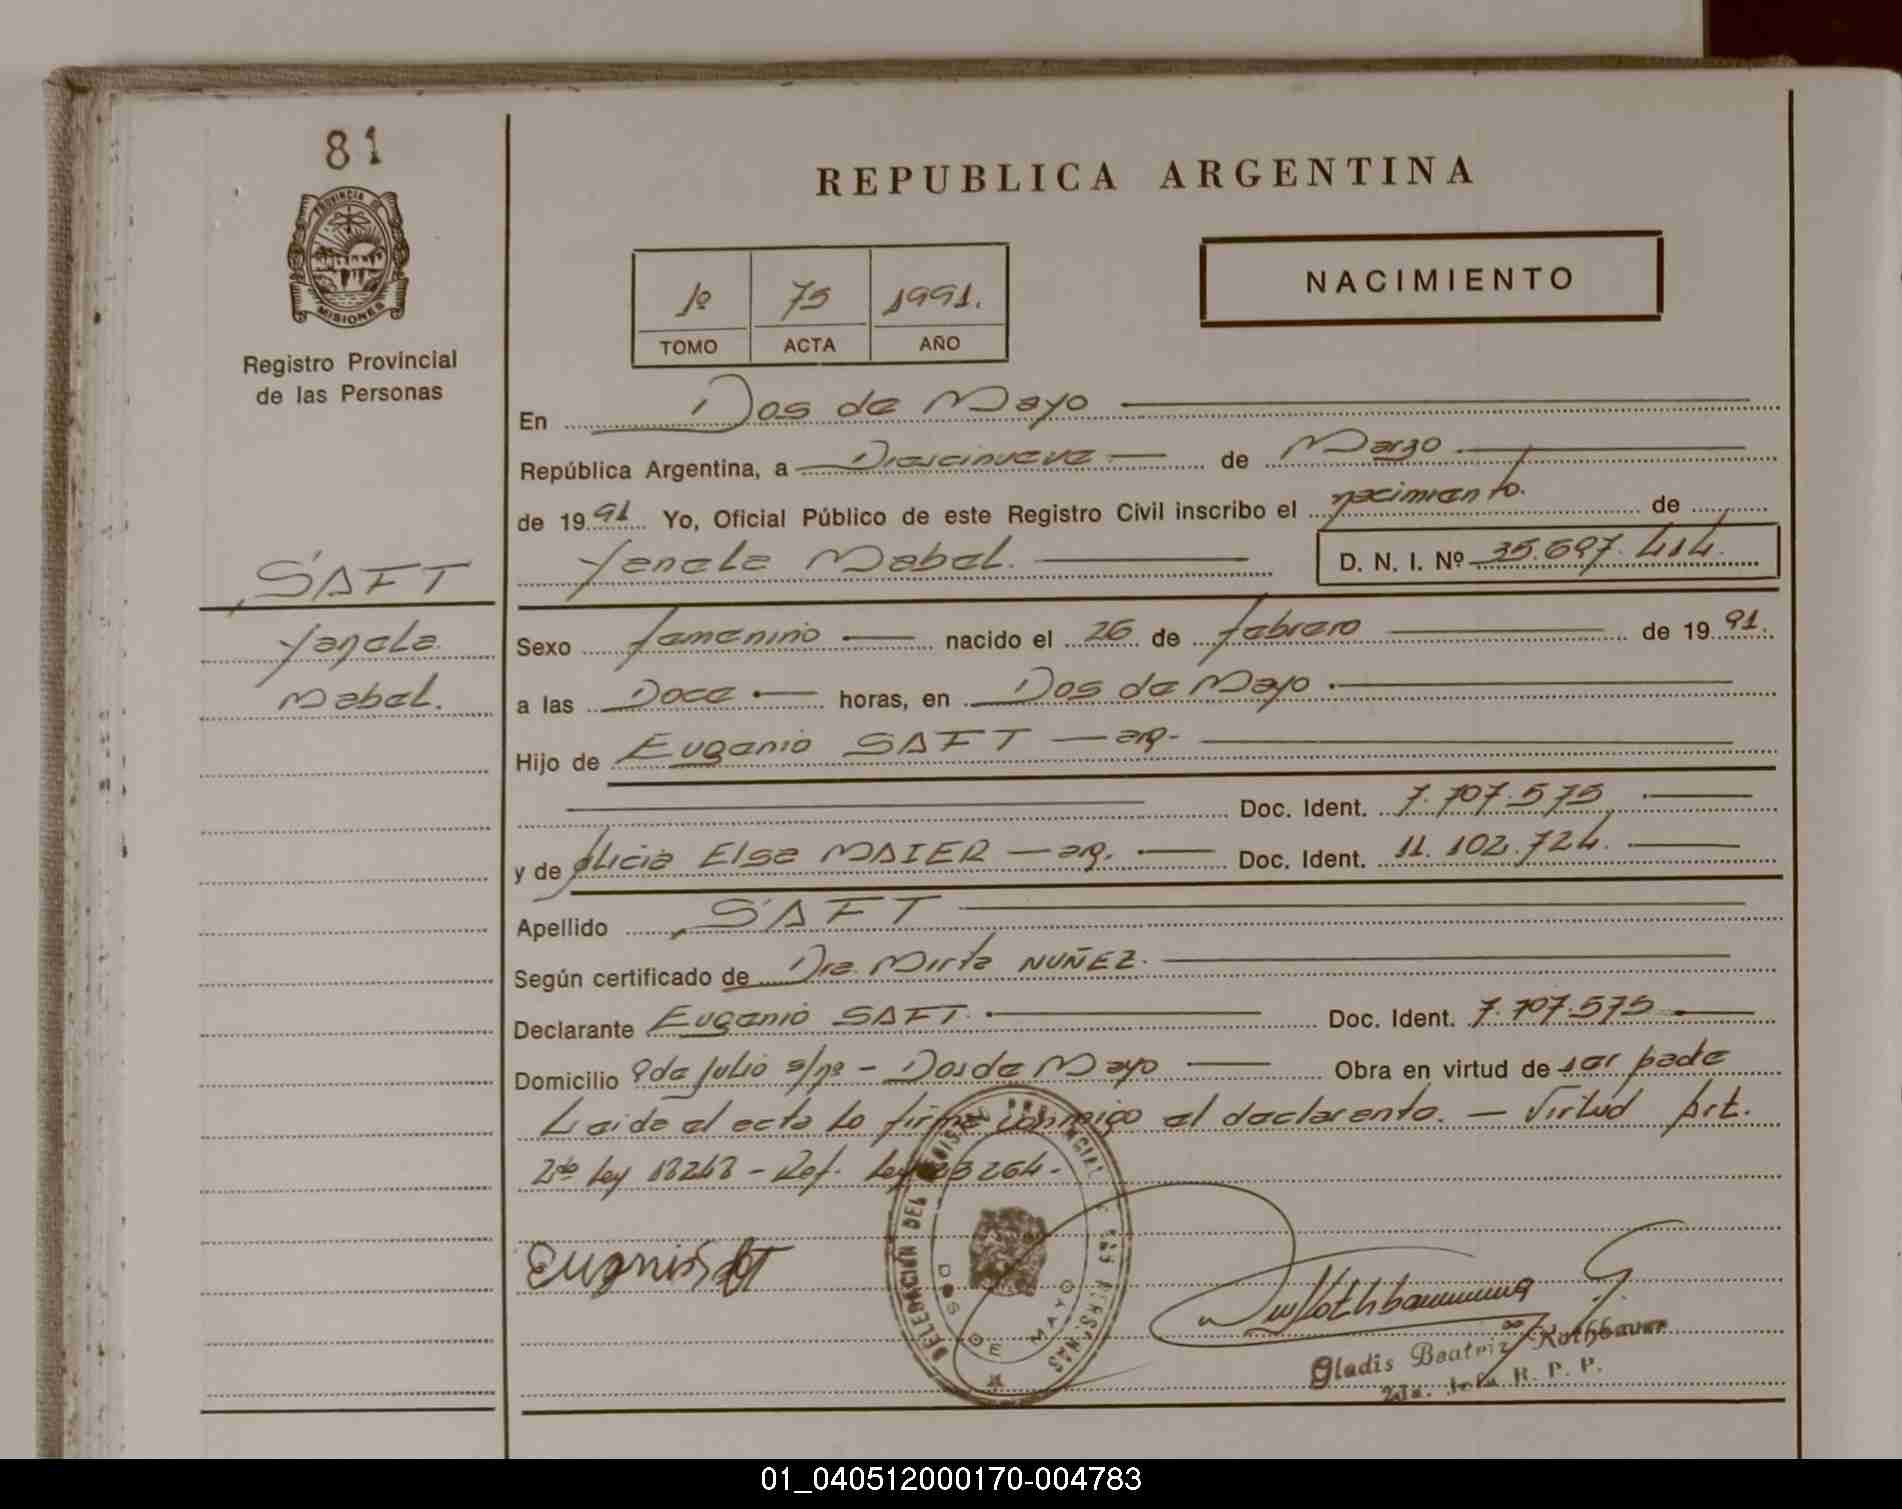 81
PROVINCIA DE
MISIONES
Registro Provincial
de las Personas
REPUBLICA ARGENTINA
NACIMIENTO
1º 75 1991.
TOMO ACTA AÑO
En Dos de Mayo
República Argentina, a Diescinueve de Marzo
de 1991 Yo, Oficial Público de este Registro Civil inscribo el nacimiento. de
Yanela Mabel. D. N. I. Nº 35.697.414.
SAFT
Yanela
Mabel.
Sexo femenino nacido el 26 de febrero de 1991.
a las Doce horas, en Dos de Mayo.
Hijo de Eugenio SAFT — arg.
Doc. Ident. 7.707.575
y de Alicia Elsa MAIER — arg. Doc. Ident. 11.102.724.
Apellido SAFT
Según certificado de Dra. Mirta NUÑEZ.
Declarante Eugenio SAFT. Doc. Ident. 7.707.575
Domicilio 9 de Julio s/nº - Dos de Mayo Obra en virtud de ser padre
Leida el acta la firma conmigo el declarante. — Virtud Art.
2do Ley 18248 - Ref. Ley 23264.
DELEGACION DEL REGISTRO PROVINCIAL DE LAS PERSONAS
DOS DE MAYO
Gladis Beatriz Rothbauer
R. P. P.
01_040512000170-004783